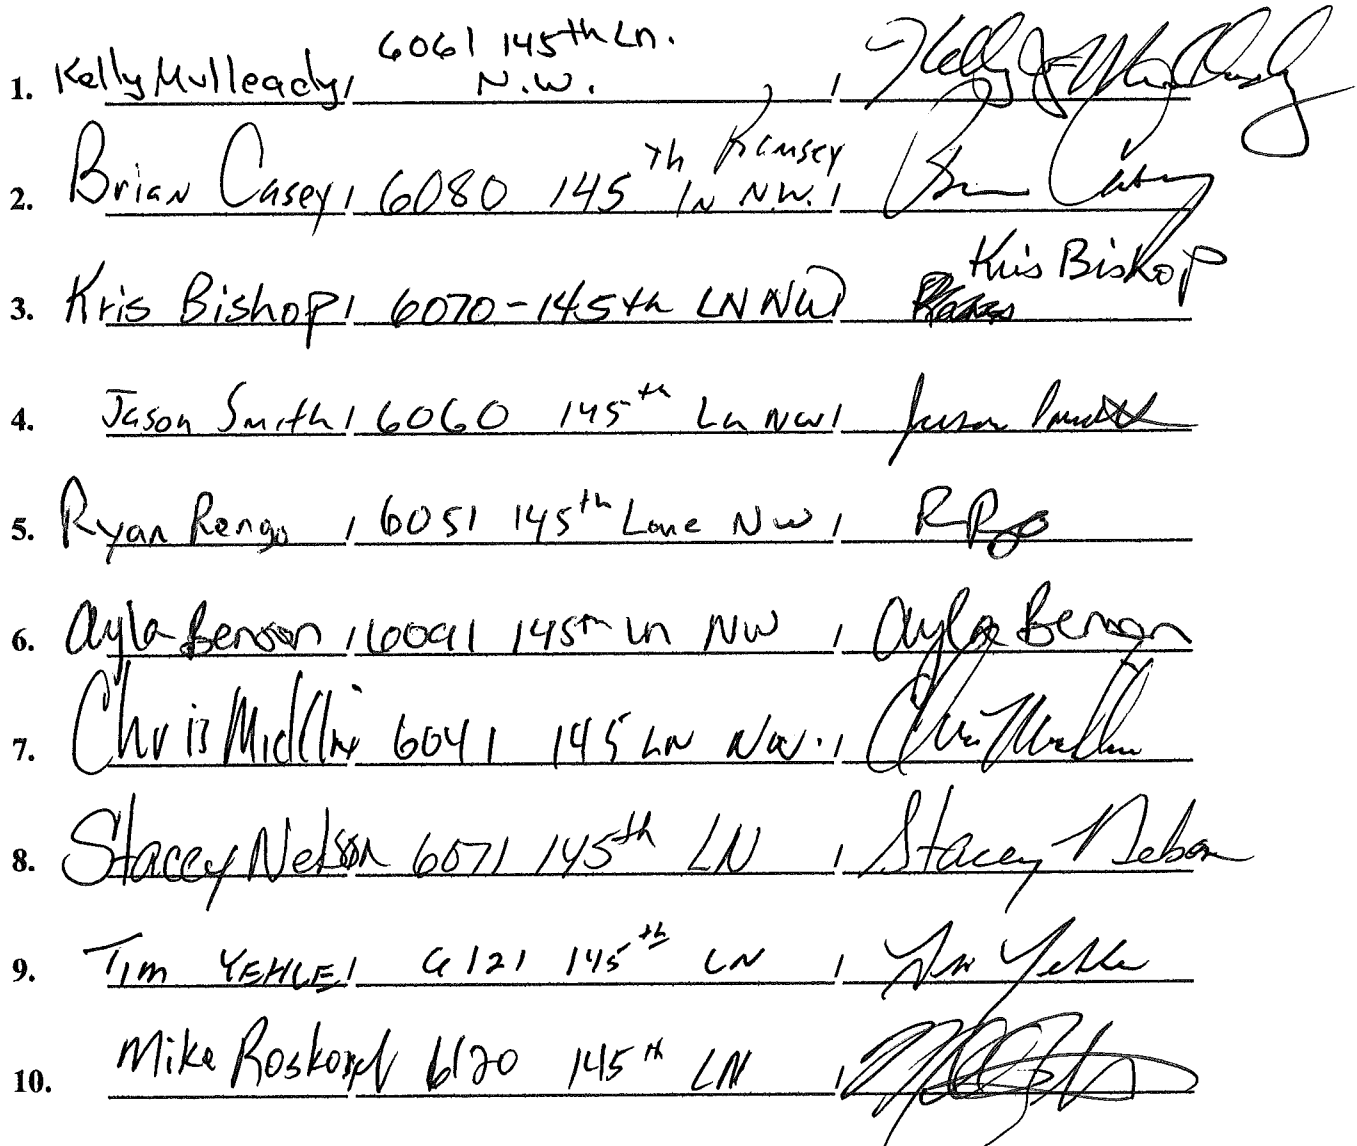 1. Kelly Mulleady / 6061 145th Ln. N.W. /
2. Brian Casey / 6080 145th Ln N.W. Ramsey / Brian Casey
3. Kris Bishop / 6070-145th LN NW / Kris Bishop
4. Jason Smith / 6060 145th Ln NW / Jason Smith
5. Ryan Rengo / 6051 145th Lane NW /
6. Ayla Benson / 6091 145th Ln NW / Ayla Benson
7. Chris 6041 145 LN NW. / Chris
8. Stacey Nelson 6071 145th LN / Stacey Nelson
9. Tim YEHLE / 6121 145th LN / Tim Yehle
10. Mike 6120 145th LN /